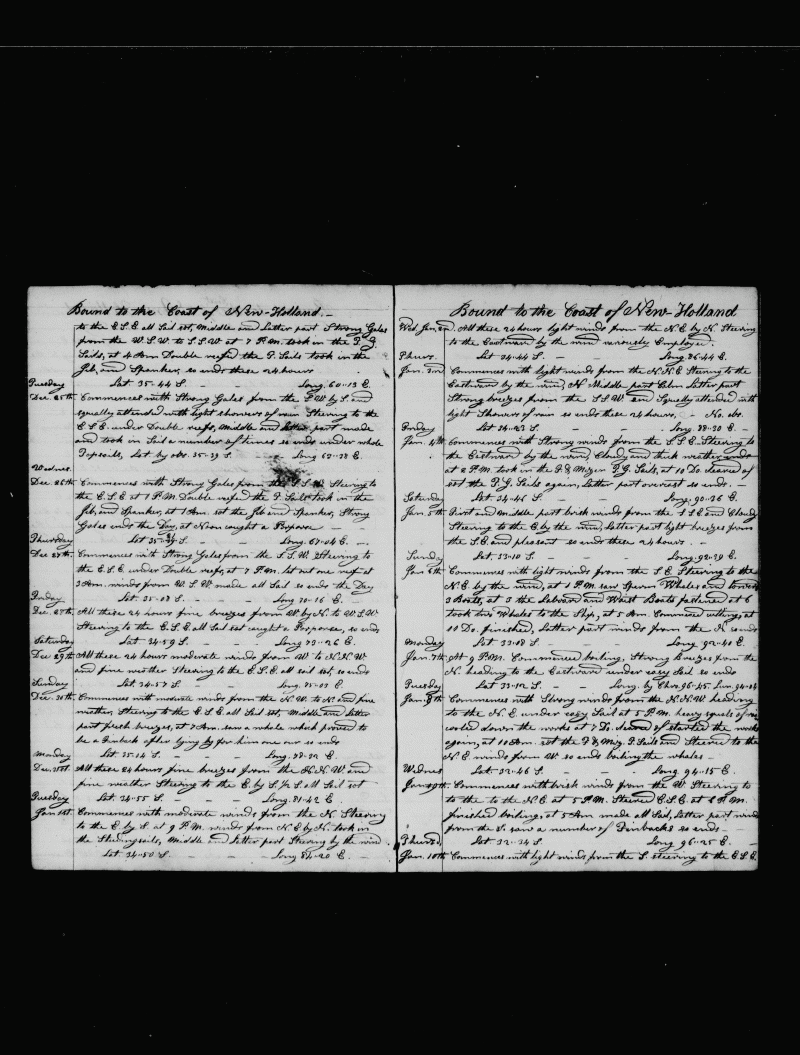 Bound to the Coast of New-Holland.-
to the E.S.E all Sail set, Middle and Latter part Strong Gales
from the W.S.W. to S.S.W at 7 P.M. took in the T.G.
Sails, at 4 Am Double reefd the T. Sails took in the
Jib, and Spanker, so ends these 24 hours
Tuesday Lat 35-44 S. - - Long. 60-13 E.
Dec. 25th Commences with Strong Gales from the S.W by S. and
squally attended with light showers of rain Steering to the
E.S.E under Double reefs, Middle and latter part made
and took in Sail a number of times so ends under whole
Topsails, Lat by obs. 35-39 S. Long 63-28 E.
Wednes.
Dec. 26th Commences with Strong Gales from the S.S.W. Steering to
the E.S.E at 1 P.M. Double reefd the T. Sails took in the
Jib, and Spanker, at 1 Am. set the Jib and Spanker, Strong
Gales ends the Day, at Noon caught a Porpose -
Thursday Lat 35- S. - - Long. 67-04 E. -
Dec 27th Commences with Strong Gales from the S.S.W Steering to
the E.S.E. under Double reefs, at 7 P.M. let out one reef at
3 Am. winds from W.S.W. made all Sail so ends the Day
Friday Lat. 35-03 S. - - Long 70-16 E.
Dec. 28th All these 24 hours fine breezes from W by N. to W.S.W
Steering to the E.S.E all Sail set caught a Porpouse, so ends
Saturday Lat 34-59 S. - - Long 73-26 E.
Dec 29th All these 24 hours moderate winds from W. to N.N.W.
and fine weather Steering to the E.S.E. all sail set, so ends
Sunday Lat 34-57 S. - - Long. 75-53 E.
Dec. 30th Commences with moderate winds from the N.W. to N. and fine
weather, Steering to the E.S.E all Sail set, Middle and latter
part fresh breezes, at 7 Am. saw a whale which proved to
be a Finback after lying by for him one our so ends
Monday Lat. 35-14 S. - - Long. 78-32 E.
Dec. 31st All these 24 hours fine breezes from the N.N.W. and
fine weather Steering to the E. by S. ½ S. all Sail set
Tuesday Lat. 34-55 S. - - Long. 81-42 E.
Jan 1st. Commences with moderate winds from the N. Steering
to the E. by S. at 9 P.M. winds from N.E by N. took in
the Steeringsails, Middle and Latter part Steering by the wind
Lat. 34-50 S. - - Long 84-20 E.
Bound to the Coast of New-Holland
Wed Jan. 2nd. All these 24 hours light winds from the N.E by N. Steering
to the Eastward by the wind variously Employed.
Thurs. Lat 34-44 S. - - Long 86-44 E.
Jan. 3rd Commences with light winds from the N.N.E Steering to the
Eastward by the wind, Middle part Calm Latter part
Strong breezes from the S.S.W and Squally attended with
light Showers of rain so ends these 24 hours. - No. obs.
Friday Lat 34-23 S. - - Long 88-30 E. -
Jan. 4th Commences with Strong winds from the S.S.E. Steering to
the Eastward by the wind, Cloudy and thick weather ends
at 2 P.M. took in the F. & Mizen T.G. Sails, at 10 Do. cleared of
set the T.G. Sails again, Latter part overcast so ends. -
Saturday Lat 34-46 S. - - Long. 90-36 E.
Jan. 5th First and Middle part brisk winds from the S.S.E and Cloudy
Steering to the E. by the wind, Latter part light breezes from
the S.E. and pleasant so ends these 24 hours. -
Sunday Lat. 33-10 S. - - Long. 92-39 E.
Jan 6th Commences with light winds from the S.E. Steering to the
N.E. by the wind, at 1 P.M. saw Sperm Whales and lowered
3 Boats, at 3 the Labward and Waist Boats fastened at 6
took two Whales to the Ship, at 5 Am. Commencd cutting, at
10 Do. finished, Latter part winds from the N. so ends
Monday Lat 33-08 S. - - Long 92-40 E.
Jan. 7th At 9 P.M. Commenced boiling, Strong Breezes from the
N. heading to the Eastward under easy Sail so ends
Tuesday Lat 33-12 S. - Long. by Chro. 96-45. Lun. 94-
Jan. 8th Commences with Strong winds from the N.N.W. heading
to the N.E. under easy Sail at 5 P.M. heavy squals of rain
cooled down the works at 7 Do. cleared of started the works
again, at 10 Am. set the F. & Miz. T. Sails and Steered to the
N.E. winds from W. so ends boiling the whales -
Wednes Lat. 32-46 S. - - Long. 94-15 E.
Jan 9th. Commences with brisk winds from the W. Steering to
to the to the N.E. at 5 P.M. Steered E.S.E. at 6 P.M.
finished boiling, at 5 Am made all Sail, Latter part winds
from the S. saw a number of Finbacks so ends -
Thursd. Lat 32-34 S. Long 96-25 E. -
Jan. 10th Commences with light winds from the S. steering to the E.S.E.